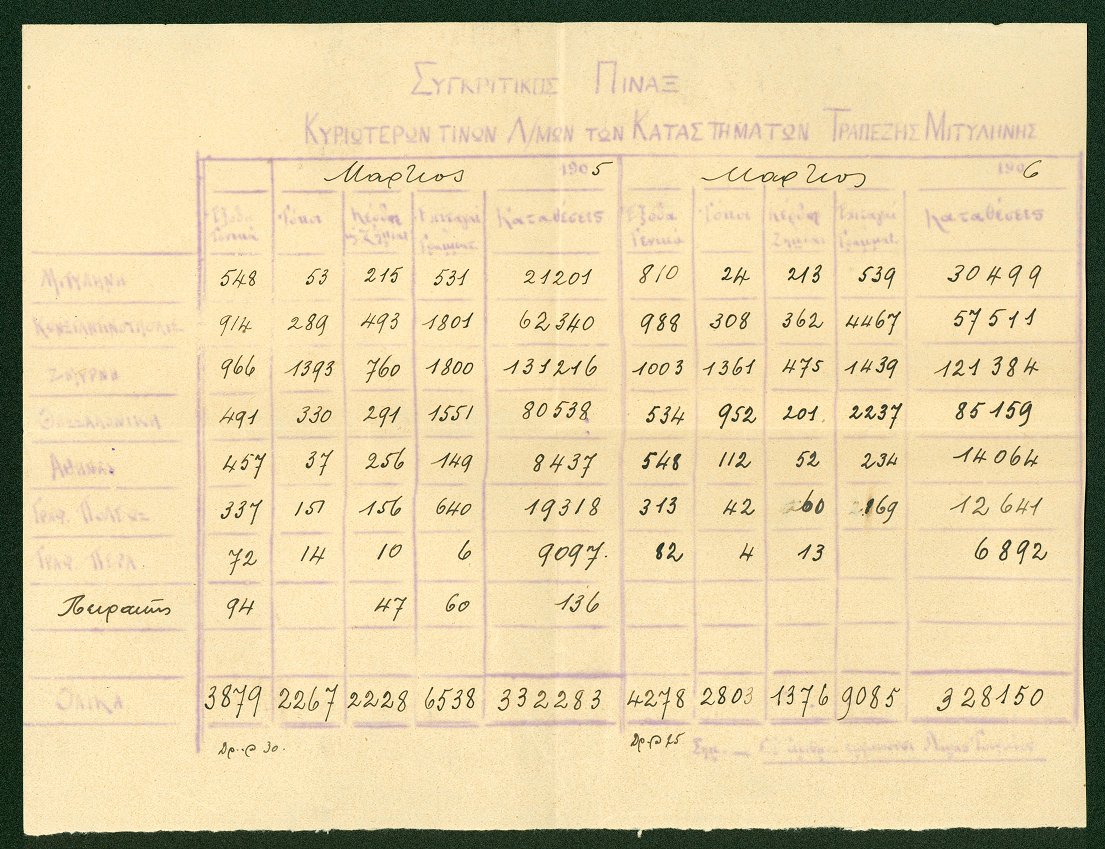 ΣΥΓΚΡΙΤΙΚΟΣ ΠΙΝΑΞ
ΚΥΡΙΩΤΕΡΩΝ ΤΙΝΩΝ Λ/ΜΩΝ ΤΩΝ ΚΑΤΑΣΤΗΜΑΤΩΝ ΤΡΑΠΕΖΗΣ ΜΙΤΥΛΗΝΗΣ
Μαρτιος 1905 Μαρτιος 1906
Έξοδα Γενικά Τόκοι Κέρδη Ζημίαι Γραμμάτ. Καταθέσεις Έξοδα Γενικά Τόκοι Κέρδη Ζημίαι Γραμματ. Καταθέσεις
ΜΙΤΥΛΗΝΗ 548 53 215 531 21201 810 24 213 539 30499
ΚΩΝΣΤΑΝΤΙΝΟΥΠΟΛΙΣ 914 289 493 1801 62340 988 308 362 4467 57511
ΣΜΥΡΝΗ 966 1393 760 1800 131216 1003 1361 475 1439 121384
ΘΕΣΣΑΛΟΝΙΚΗ 491 330 291 1551 80538 534 952 201 2237 85159
ΑΘΗΝΑΙ 457 37 256 149 8437 548 112 52 234 14064
ΓΡΑΦ. ΠΟΛΕΩΣ 337 151 156 640 19318 313 42 60 169 12641
ΓΡΑΦ. ΠΕΡΑ 72 14 10 6 9097. 82 4 13 6892
Πειραιεύς 94 47 60 136
ΟΛΙΚΑ 3879 2267 2228 6538 332283 4278 2803 1376 9085 328150
30. 25 Σημ. — Οι αριθμοί Λίρας